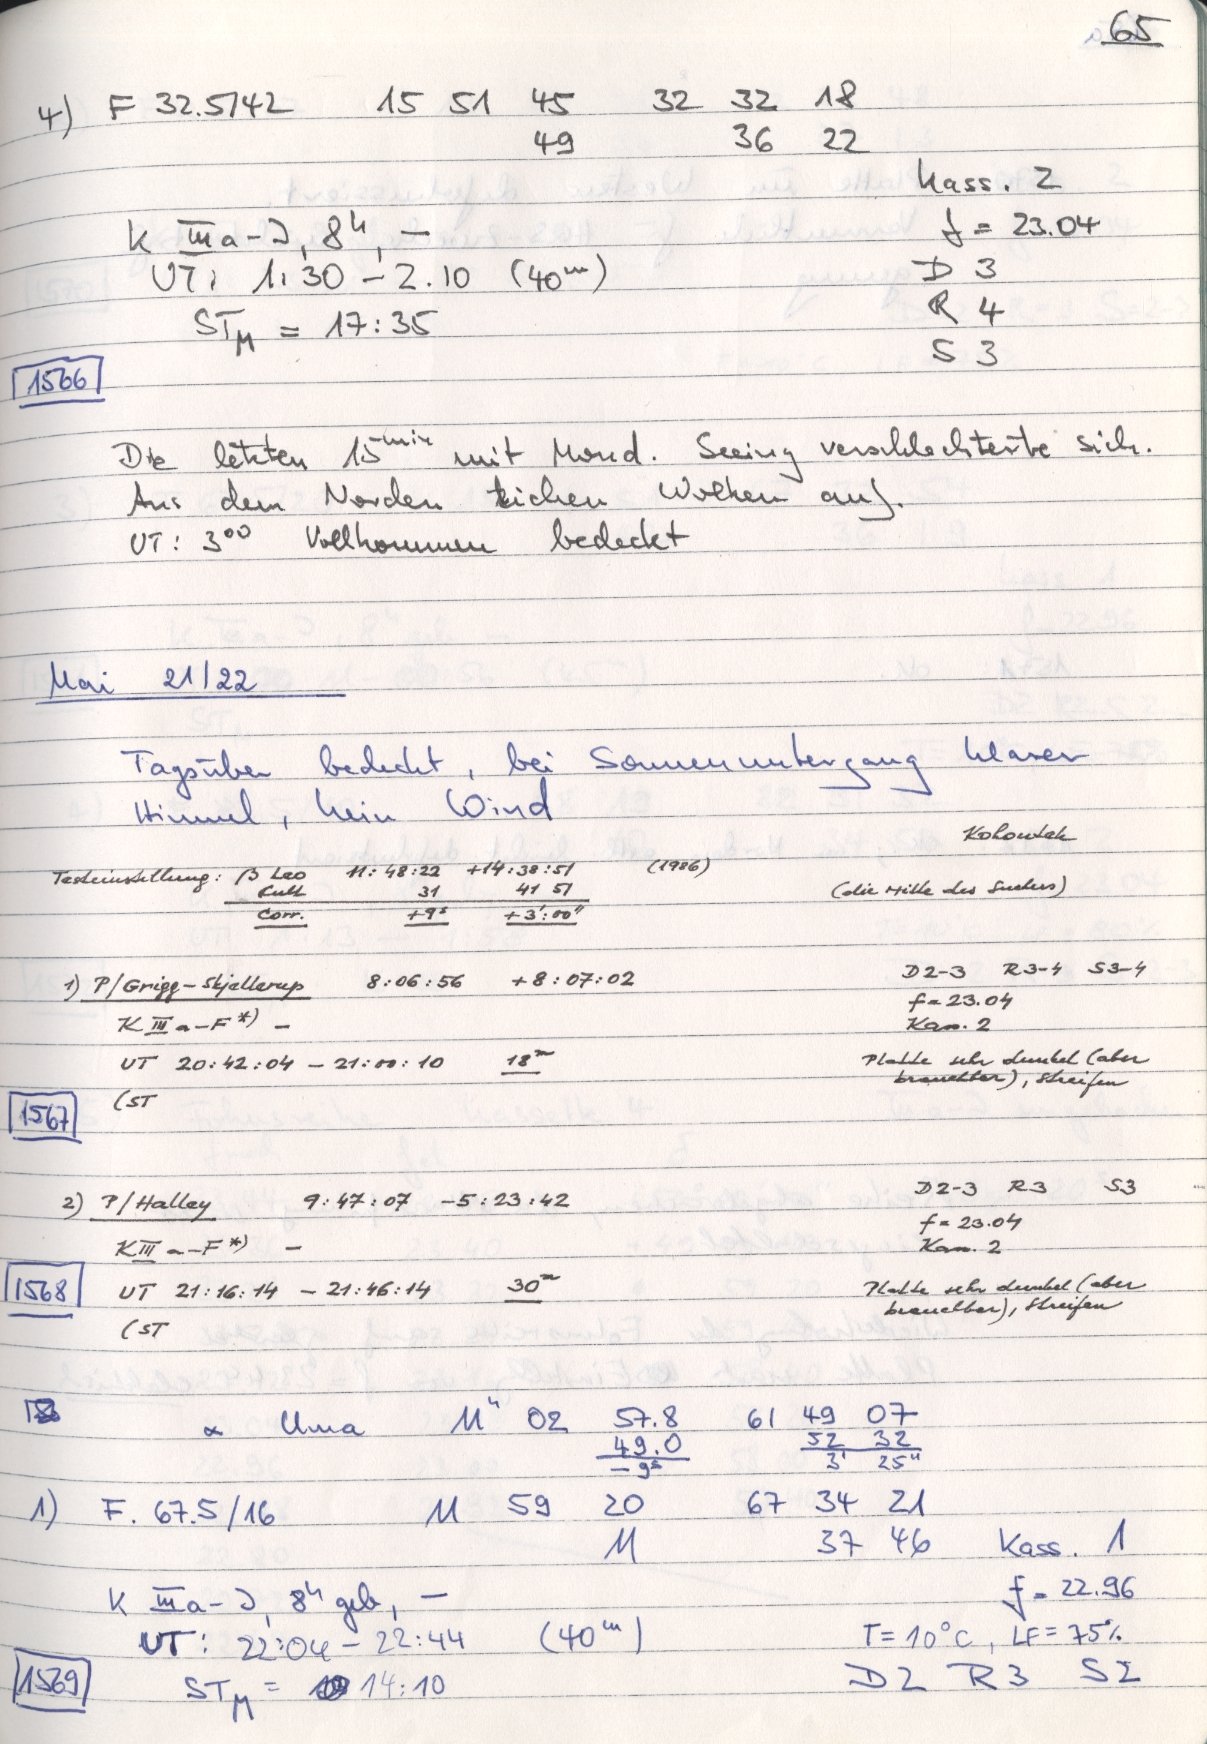 65
4) F 32.5/42 15 51 45 32 32 18
49 36 22
Kass. 2
K IIIa-J, 8h, — f = 23.04
UT: 1:30 – 2.10 (40m) D 3
STM = 17:35 R 4
S 3
1566
Die letzten 15min mit Mond. Seeing verschlechterte sich.
Aus dem Norden zichen Wolken auf.
UT: 3oo Vollkommen bedeckt
Mai 21/22
Tagsüber bedeckt, bei Sonnenuntergang klarer
Himmel, kein Wind
Kohoutek
Testeinstellung: β Leo 11:48:22 +14:38:51 (1986)
Kult 31 41 51 (die Mitte des Suchers)
Corr. +9s +3':00"
1) P/Grigg-Skjellerup 8:06:56 +8:07:02 D2-3 R3-4 S3-4
f = 23.04
K III a-F *) — Kass. 2
UT 20:42:04 – 21:00:10 18m Platte sehr dunkel (aber
brauchbar), Streifen
(ST
1567
2) P/Halley 9:47:07 -5:23:42 D2-3 R3 S3
f = 23.04
K III a-F *) — Kass. 2
1568 UT 21:16:14 – 21:46:14 30m Platte sehr dunkel (aber
brauchbar), Streifen
(ST
α Uma 11h 02 57.8 61 49 07
49.0 52 32
-9s 3' 25"
1) F. 67.5/16 11 59 20 67 34 21
11 37 46 Kass. 1
K IIIa-J, 8h geb, — f = 22.96
UT: 22:04 – 22:44 (40m) T = 10°C, LF = 75%
1569 STM = 14:10 D2 R3 S2